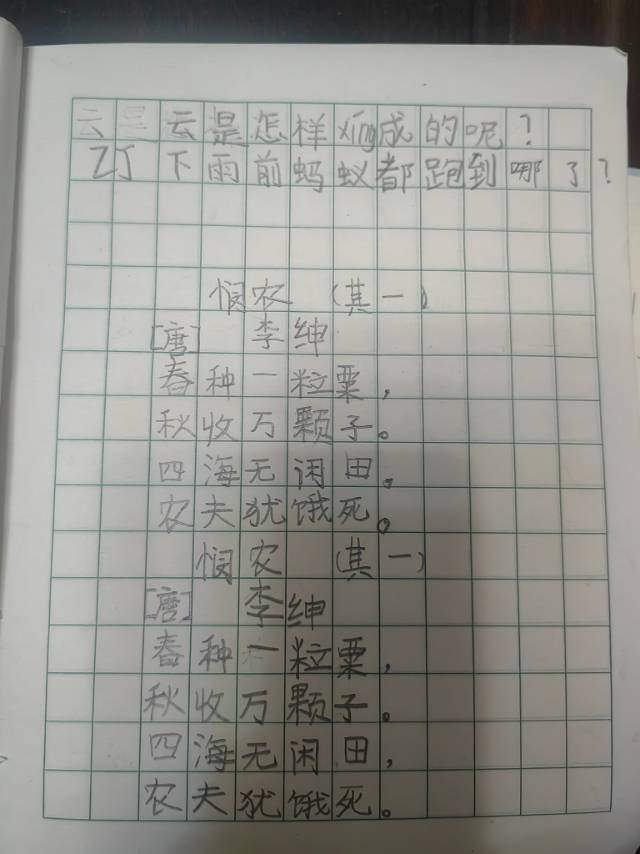 云是云是怎样xing成的呢?
ZJ下雨前蚂蚁都跑到哪了?
悯农(其一)
[唐] 李绅
春种一粒粟,
秋收万颗子。
四海无闲田,
农夫犹饿死。
悯农(其一)
[唐] 李绅
春种一粒粟,
秋收万颗子。
四海无闲田,
农夫犹饿死。